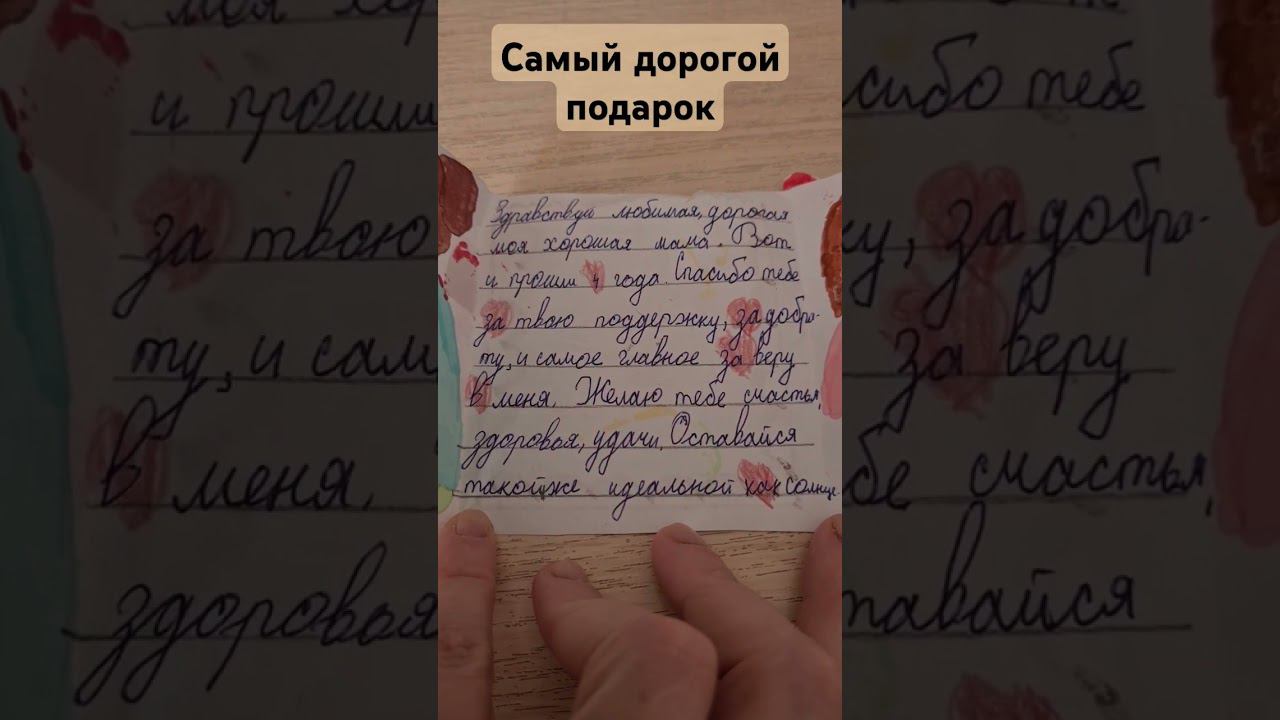 Самый дорогой
подарок
Здравствуй любимая, дорогая
моя хорошая мама. Вот
и прошли 4 года. Спасибо тебе
за твою поддержку, за добра-
ту, и самое главное за веру
в меня. Желаю тебе счастья,
здоровья, удачи. Оставайся
такойже идеальной как солнце